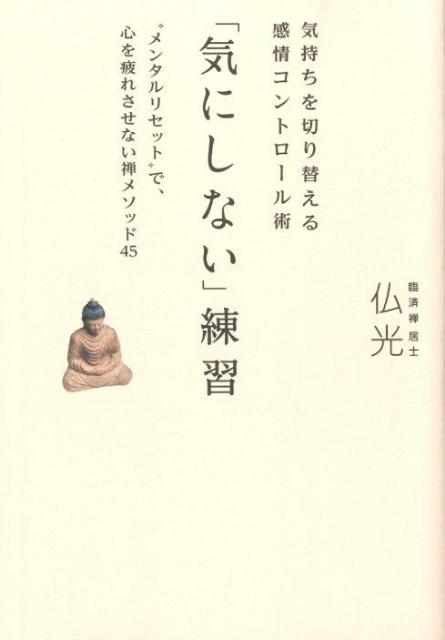 気持ちを切り替える
感情コントロール術
「気にしない」練習
〝メンタルリセット〟で、
心を疲れさせない禅メソッド45
臨済禅 居士
仏光